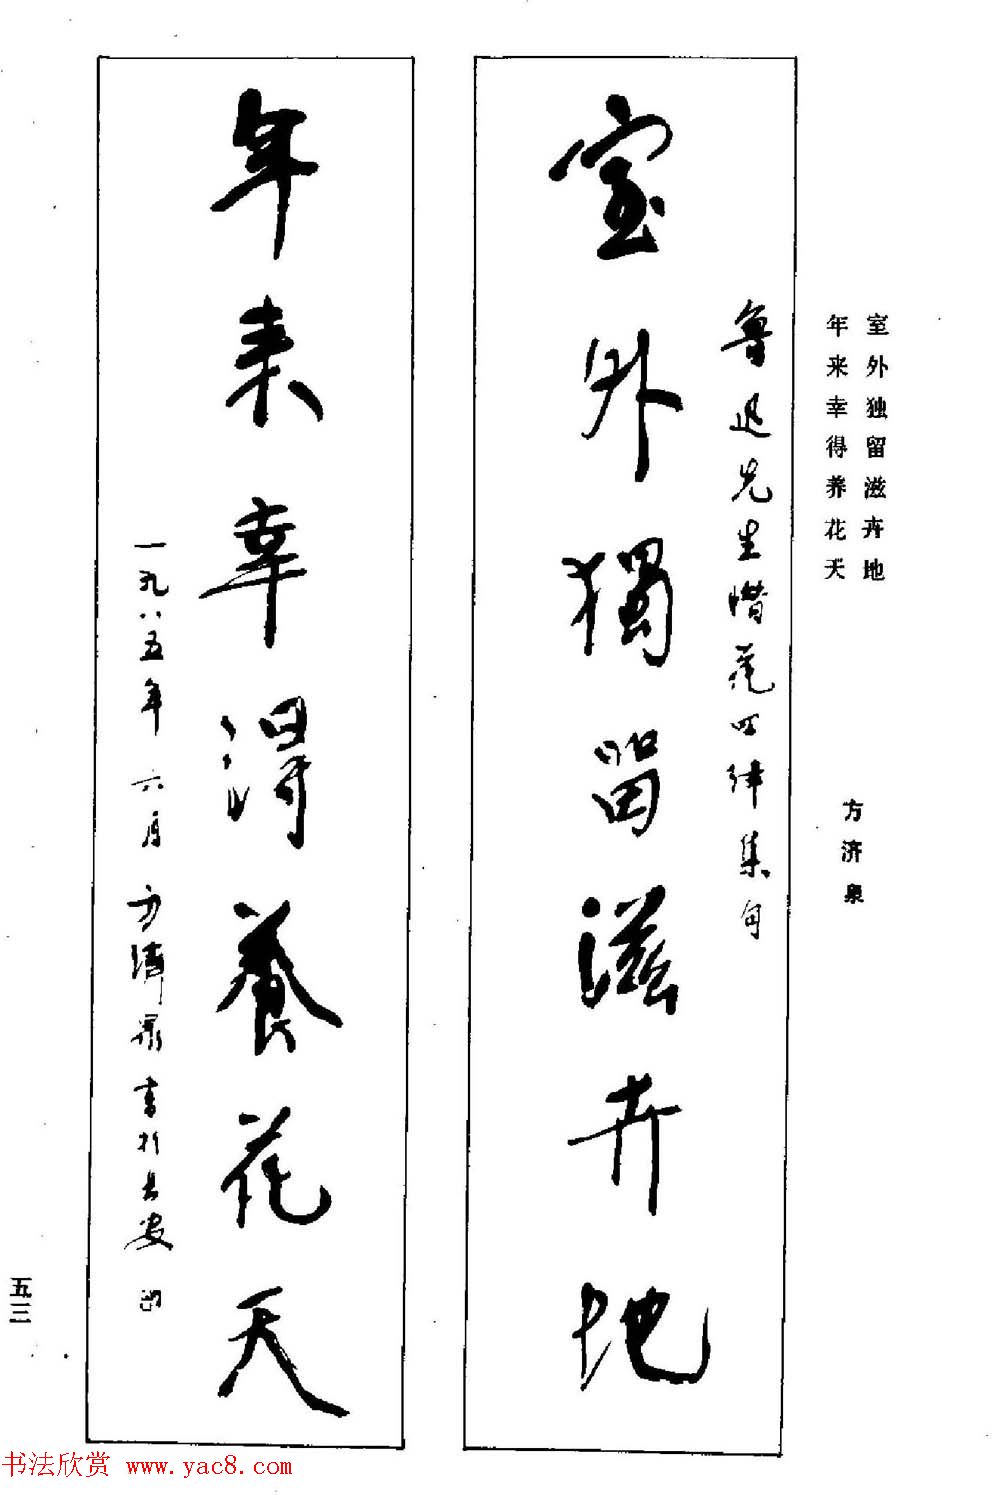 室外独留滋卉地
年来幸得养花天
方济泉
鲁迅先生惜花四律集句
室外獨留滋卉地
年来幸得養花天
一九八五年六月方濟泉书于长安
五三
书法欣赏 www.yac8.com